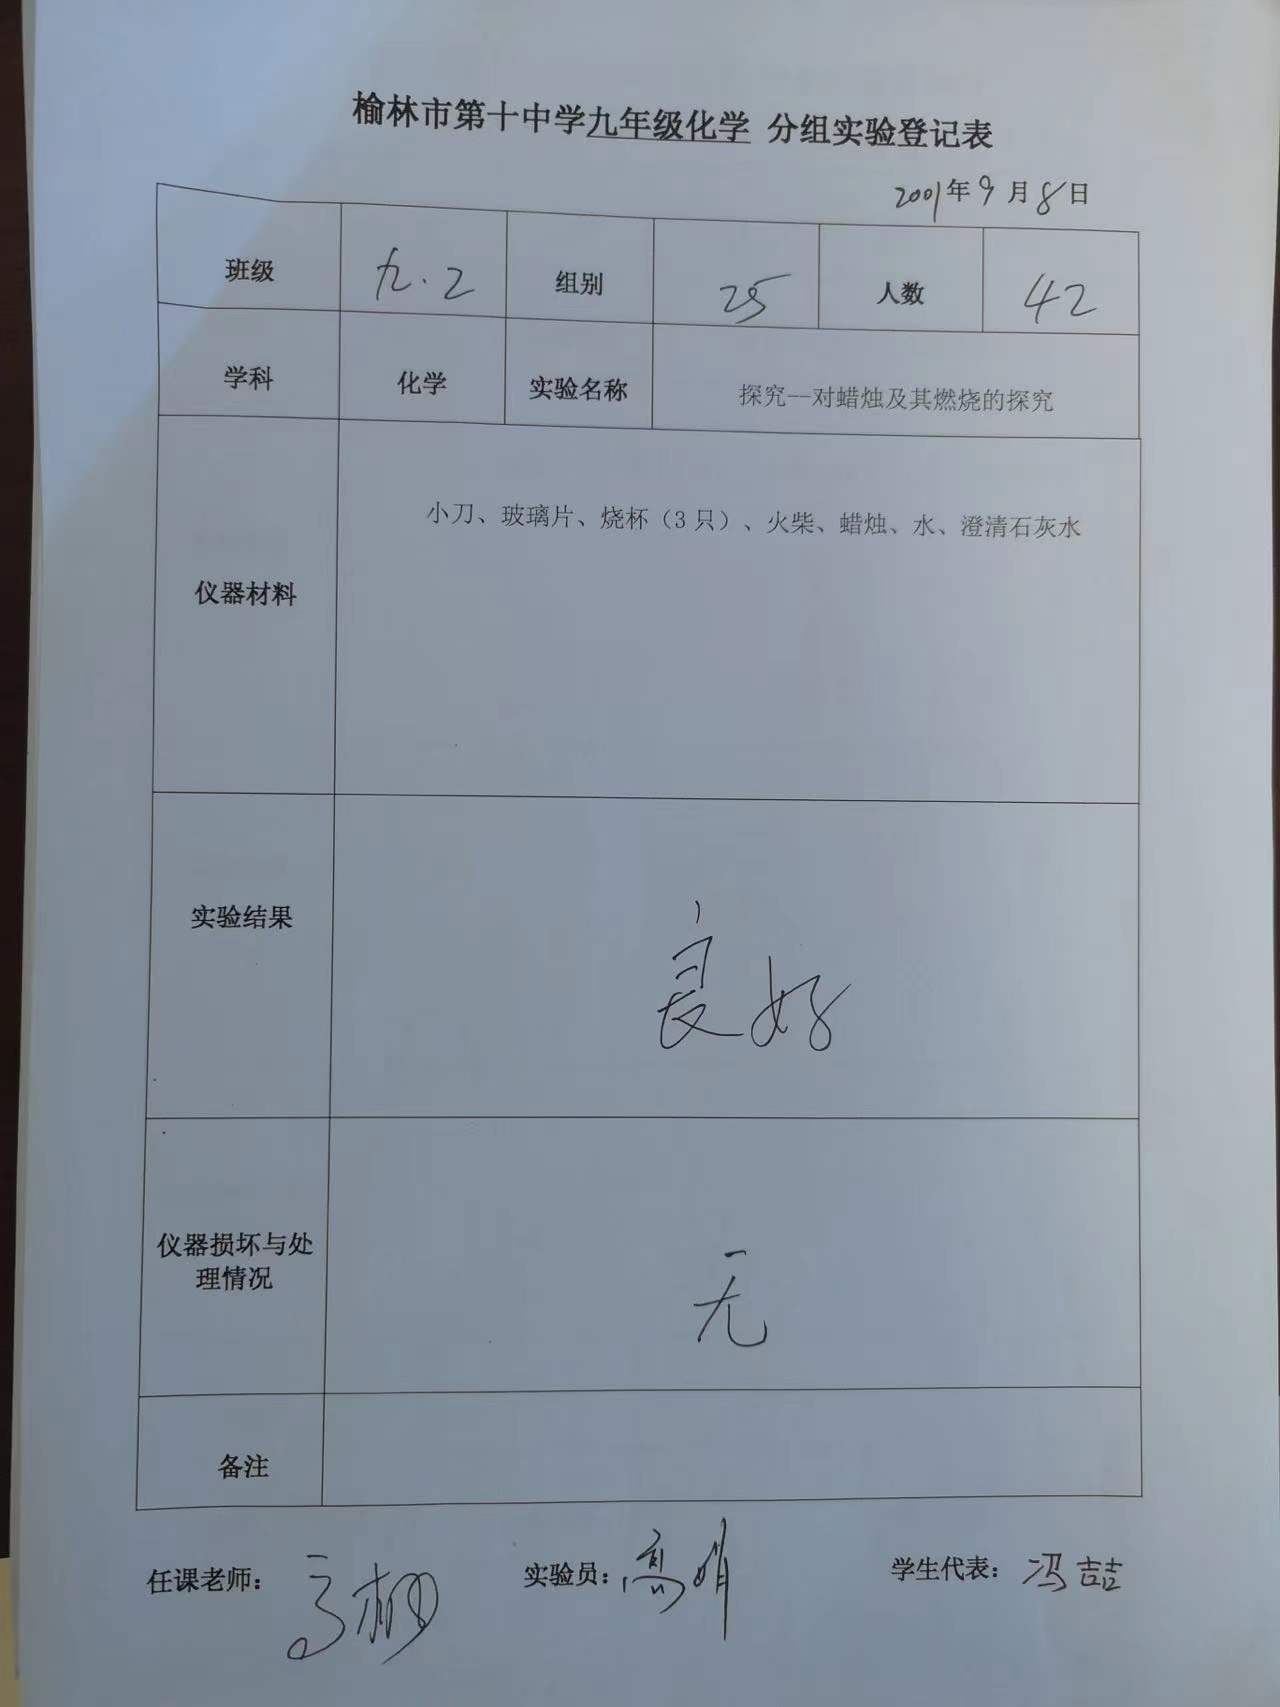 榆林市第十中学九年级化学 分组实验登记表
2001年9月8日
班级 九.2 组别 25 人数 42
学科 化学 实验名称 探究--对蜡烛及其燃烧的探究
仪器材料 小刀、玻璃片、烧杯（3只）、火柴、蜡烛、水、澄清石灰水
实验结果 良好
仪器损坏与处
理情况
无
备注
任课老师： 实验员：高 学生代表：冯喆